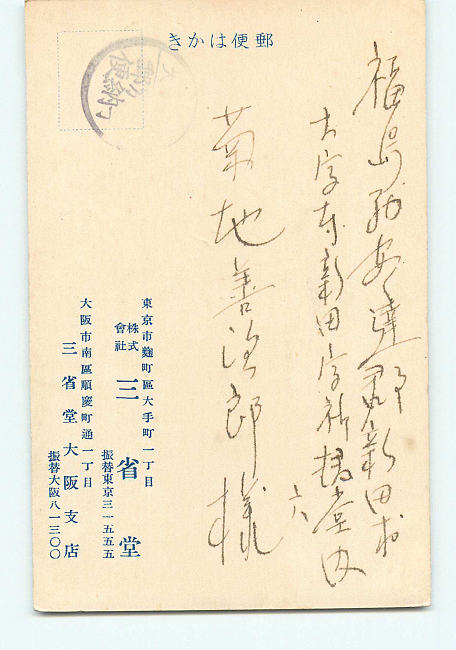 郵便はかき
福島縣安達郡新田村
新田字
堂内
六
菊地善治郎様
東京市麴町區大手町一丁目
株式會社 三省堂
振替東京三一五五五
大阪市南區順慶町通一丁目
三省堂大阪支店
振替大阪八一三〇〇